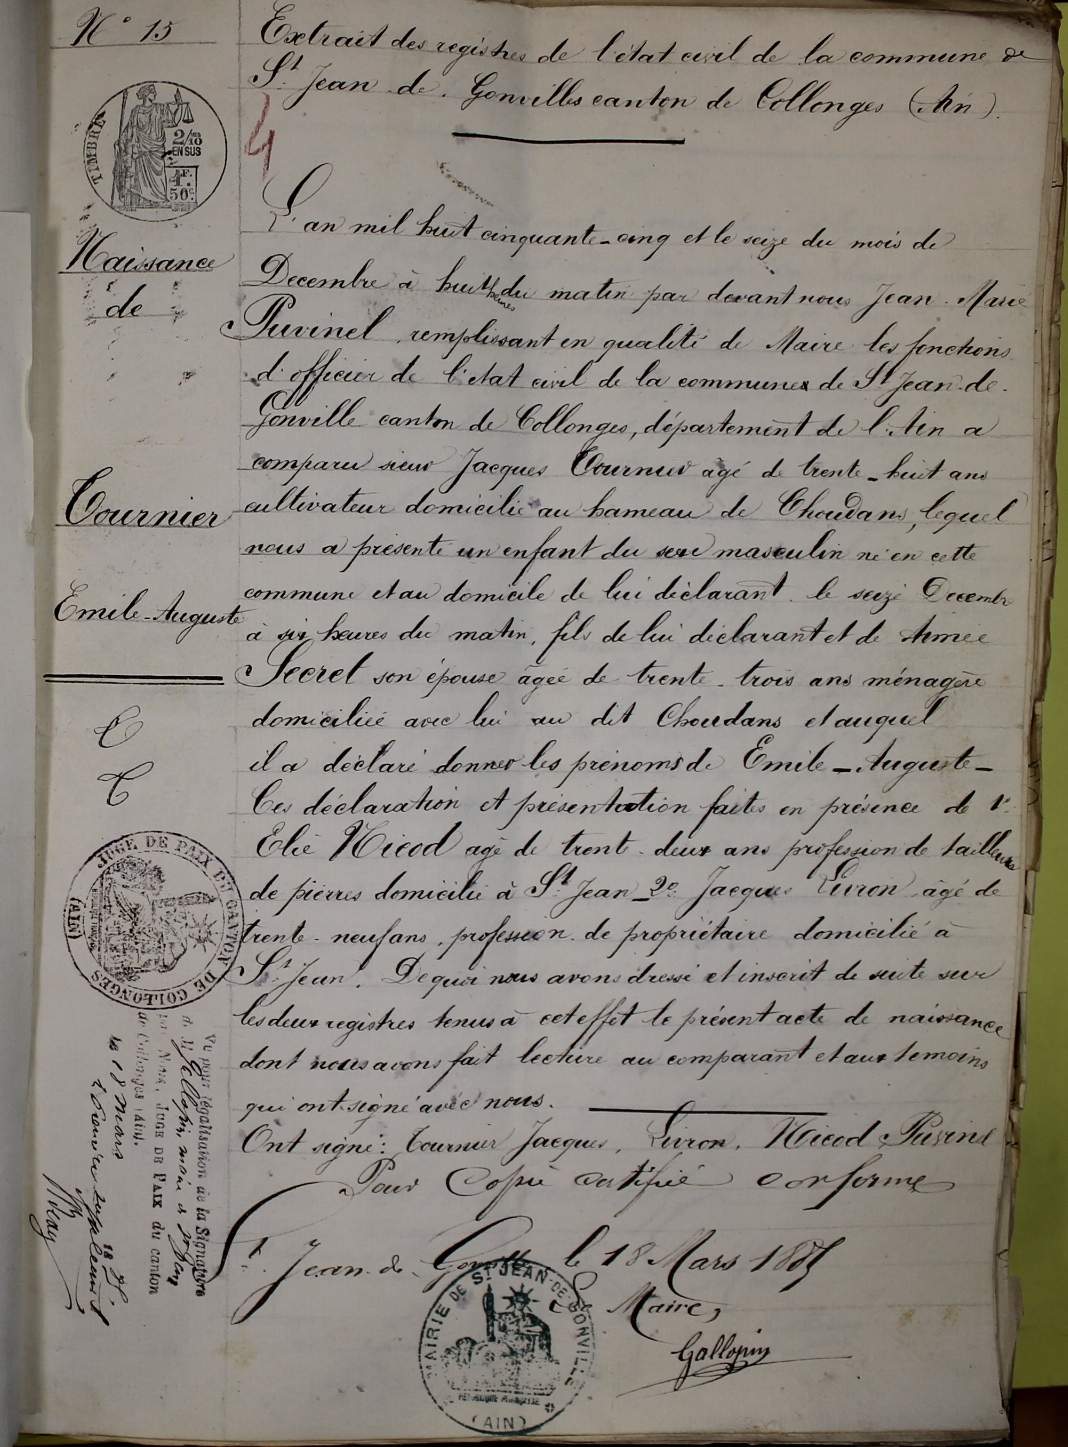 N° 15
Extrait des registres de l'état civil de la commune de
St Jean de Gonvilles canton de Collonges (Ain).
4
TIMBRE
2/10 EN SUS
1F.50c.
L'an mil huit cinquante-cinq et le seize du mois de
Decembre à huit heures du matin par devant nous Jean-Marie
Puvinel, remplissant en qualité de Maire les fonctions
d'officier de l'etat civil de la commune de St Jean-de-
Gonville canton de Collonges, département de l'Ain a
comparu sieur Jacques Tournier agé de trente-huit ans
cultivateur domicilié au hameau de Choudans, lequel
nous a présenté un enfant du sexe masculin né en cette
commune et au domicile de lui déclarant le seize Decembre
à six heures du matin, fils de lui déclarant et de Aimée
Secret son épouse âgée de trente-trois ans ménagère
domiciliée avec lui au dit Choudans et auquel
il a déclaré donner les prénoms de Emile-Auguste-
Ces déclaration et présentation faites en présence de 1°
Elie Nicod agé de trent-deux ans profession de tailleurs
de pierres domicilié à St Jean-2° Jacques Livron âgé de
trente-neuf ans, profession de propriétaire domicilié à
St Jean. De quoi nous avons dressé et inscrit de suite sur
les deux registres tenus à cet effet le présent acte de naissance
dont nous avons fait lecture au comparant et aux temoins
qui ont signé avec nous.
Ont signé: Tournier Jacques, Livron, Nicod Puvinel
Pour Copie certifiée conforme
St Jean-de-Gonville le 18 Mars 18
Le Maire,
Gallopin
MAIRIE DE ST JEAN-DE-GONVILLE
(AIN)
Naissance
de
Tournier
Emile-Auguste
JUGE DE PAIX DU CANTON DE COLLONGES
(AIN)
Vu pour légalisation de la Signature
de M. Gallopin, maire de St Jean
par Nous, JUGE DE PAIX du canton
de Collonges (AIN).
le 18 Mars 18